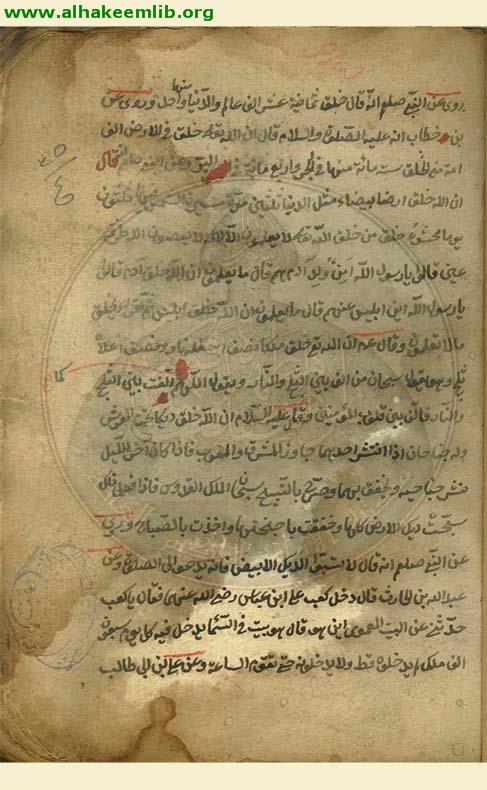 www.alhakeemlib.org
روى عن النبي صلعم انه قال خلق ثمانية عشر الف عالم والدنيا منها واحد وروى عن
بن خطاب انه عليه الصلوة والسلام قال ان الله تعالى خلق في الارض الف
امة من الخلق ستمائة منها في البحر واربع مائة في البر وعن النبي صلعم قال
ان الله خلق ارضا بيضاء مثل الدنيا ثلثين مرة مسيرة الشمس فيها ثلثون
يوما محشوة خلق من خلق الله تعالى لا يعلمون ان الله لا يعصون الله طرفة
عين قالوا يا رسول الله امن ولد آدم هم قال ما يعلمون ان الله خلق آدم قالوا
يا رسول الله اين ابليس عنهم قال ما يعلمون ان الله خلق ابليس ثم قرا ويخلق
مالا تعلمون وقال عم ان الله تع خلق ملكا نصف اسفله نار ونصف اعلاه
ثلج وهو يقول سبحان من الف بين الثلج والنار ويقول اللهم كما الفت بين الثلج
والنار فالف بين قلوب المؤمنين وقال عليه السلام ان الله خلق ديكا تحت العرش
وله جناحان اذا انتشر احدهما جاوز المشرق والمغرب فاذا كان آخر الليل
نشر جناحيه وخفق بهما وصرخ بالتسبيح سبحان الملك القدوس فاذا فعل ذلك
سبحت ديك الارض كلها وخفقت باجنحتها واخذت بالصياح وروى
عن النبي صلعم انه قال لا تسبوا الديك الابيض فانه يدعو الى الصلوة وعن
عبد الله بن الحارث قال دخل كعب على ابن عباس رضي الله عنهما فقال يا كعب
حدثني عن البيت المعمور اين هو قال هو بيت في السماء يدخل فيه كل يوم سبعون
الف ملك لم يدخلوه قط ولا يدخلونه حتى تقوم الساعة وعن علي بن ابي طالب